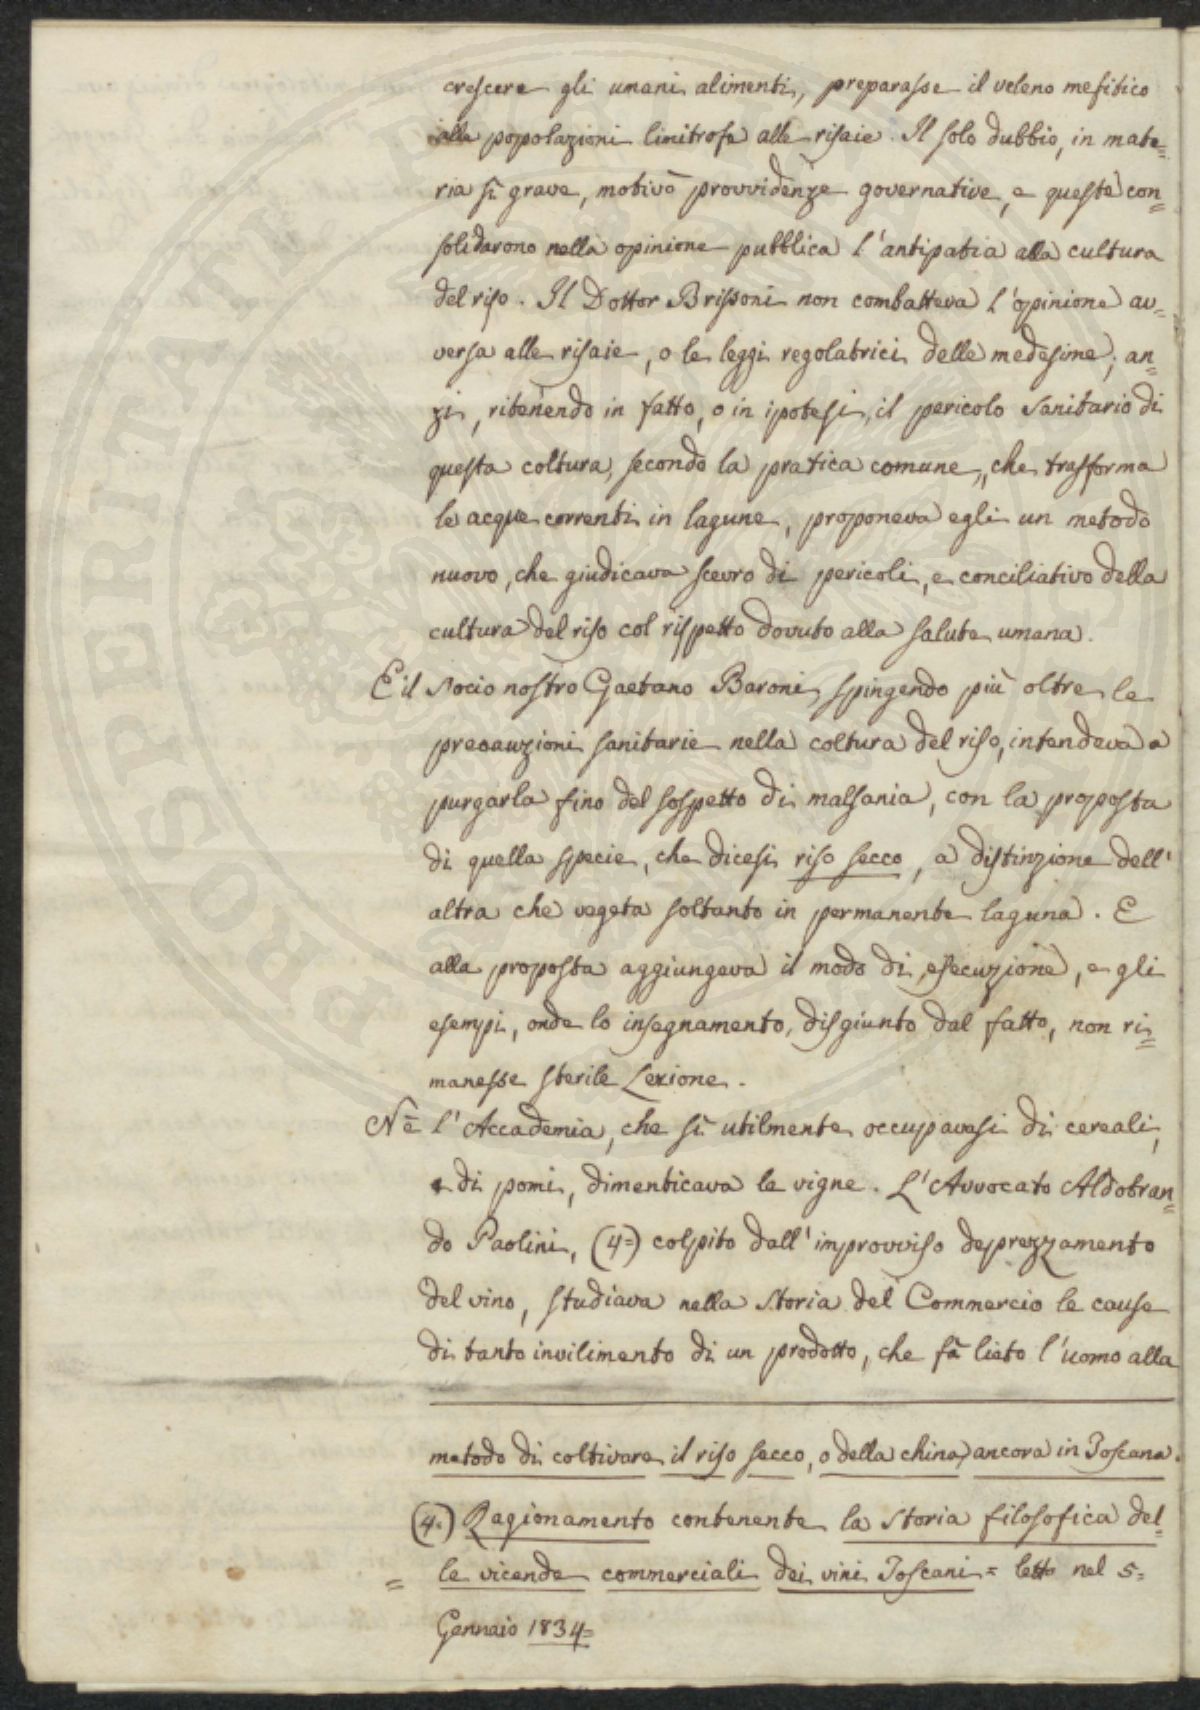 crescere gli umani alimenti, preparasse il veleno mefitico
alle popolazioni limitrofe alle risaie. Il solo dubbio, in mate=
ria sì grave, motivò provvidenze governative, e queste con=
solidarono nella opinione pubblica l'antipatia alla cultura
del riso. Il Dottor Brissoni non combatteva l'opinione av=
versa alle risaie, o le leggi regolatrici delle medesime; an=
zi, ritenendo in fatto, o in ipotesi, il pericolo sanitario di
questa coltura, secondo la pratica comune, che trasforma
le acque correnti in lagune, proponeva egli un metodo
nuovo, che giudicava scevro di pericoli, e conciliativo della
cultura del riso col rispetto dovuto alla salute umana.
E il Socio nostro Gaetano Baroni, spingendo più oltre le
precauzioni sanitarie nella coltura del riso, intendeva a
purgarla fino del sospetto di malsania, con la proposta
di quella specie, che dicesi riso secco, a distinzione dell'
altra che vegeta soltanto in permanente laguna. E
alla proposta aggiungeva il modo di esecuzione, e gli
esempi, onde lo insegnamento, disgiunto dal fatto, non ri=
manesse sterile Lezione.
Nè l'Accademia, che sì utilmente occupavasi di cereali,
e di pomi, dimenticava le vigne. L'Avvocato Aldobran=
do Paolini, (4=) colpito dall'improvviso deprezzamento
del vino, studiava nella Storia del Commercio le cause
di tanto invilimento di un prodotto, che fà lieto l'uomo alla
metodo di coltivare il riso secco, o della china, ancora in Toscana.
(4=) Ragionamento contenente la Storia filosofica del=
= le vicende commerciali dei vini Toscani = letto nel 5=
Gennaio 1834=
PROSPERITATI